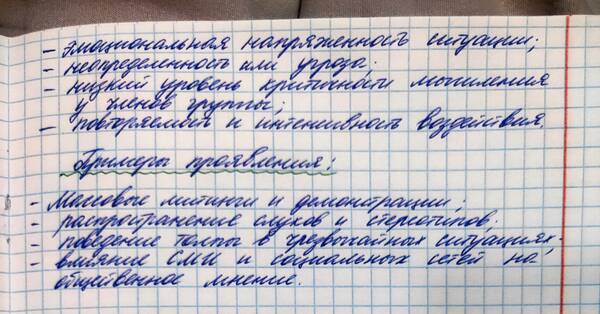 - эмоциональная напряженность ситуации;
- неопределенность или угроза;
- низкий уровень критичности мышления
у членов группы;
- повторяемость и интенсивность воздействия.
Примеры проявления:
- Массовые митинги и демонстрации;
- распространение слухов и стереотипов;
- поведение толпы в чрезвычайных ситуациях;
- влияние СМИ и социальных сетей на
общественное мнение.